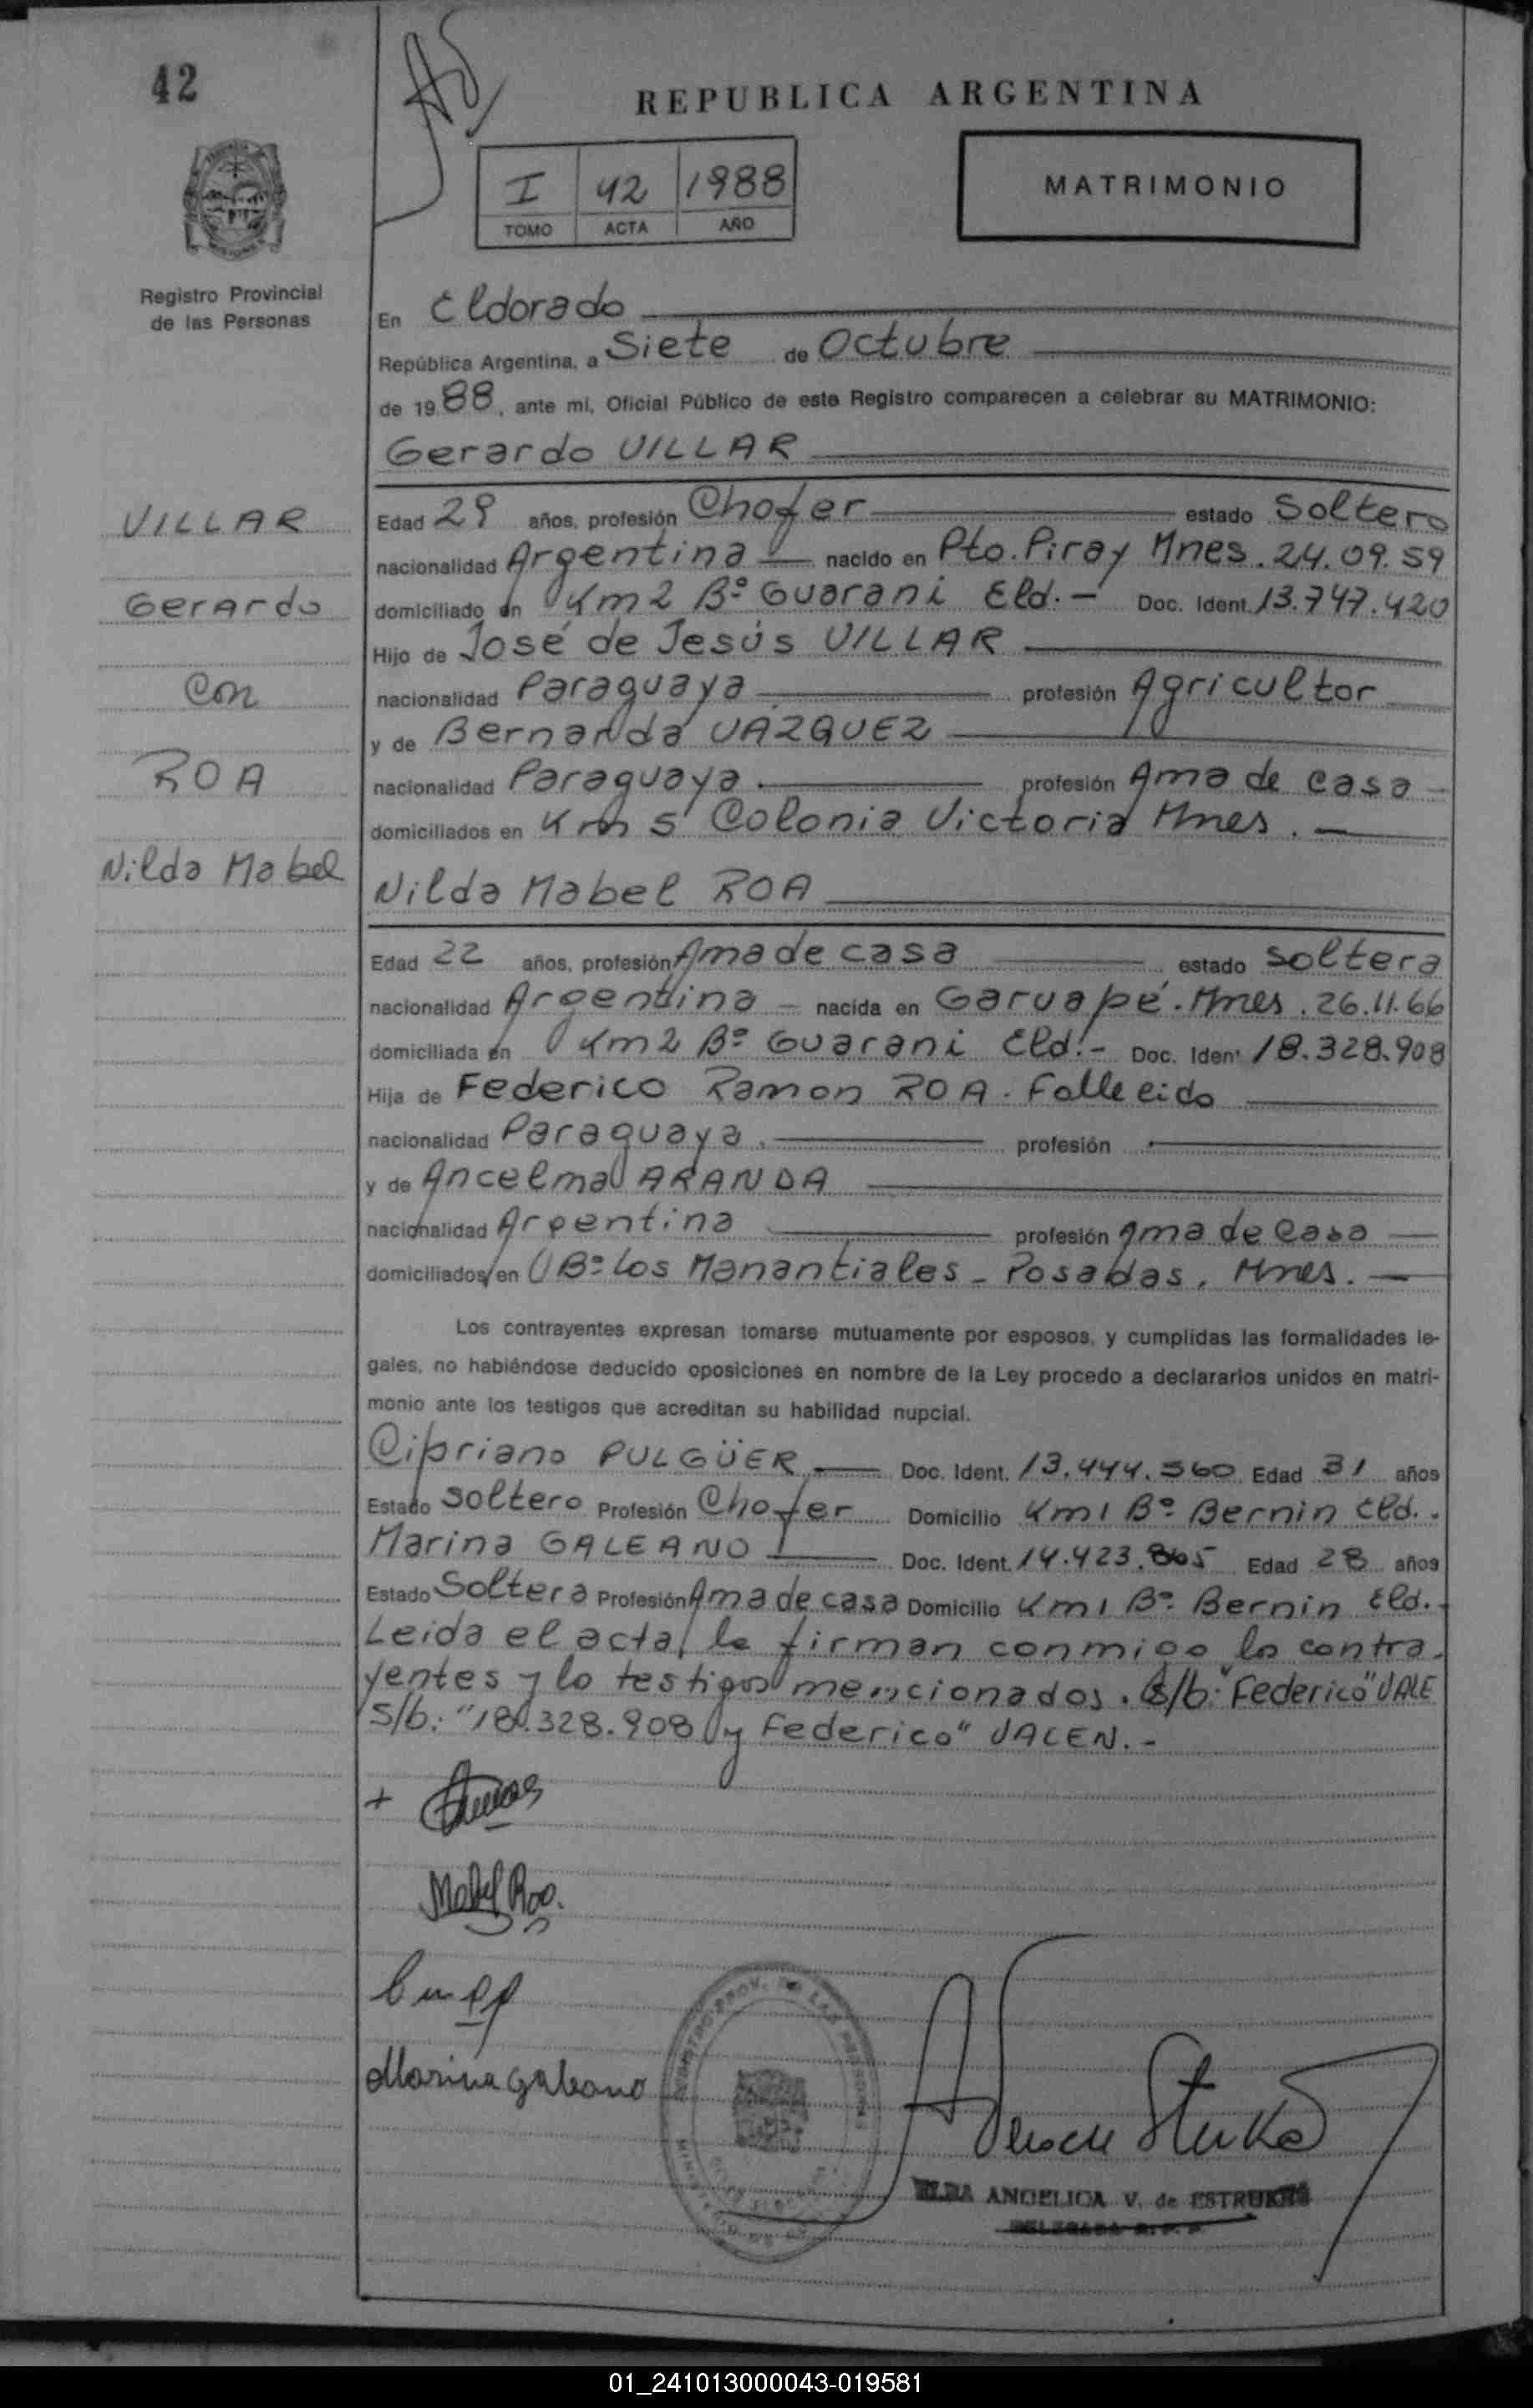 42
REPUBLICA ARGENTINA
I 42 1988
TOMO ACTA AÑO
MATRIMONIO
Registro Provincial
de las Personas
En Eldorado
República Argentina, a Siete de Octubre
de 1988, ante mí, Oficial Público de este Registro comparecen a celebrar su MATRIMONIO:
Gerardo VILLAR
VILLAR
Gerardo
Con
ROA
Nilda Mabel
Edad 29 años, profesión Chofer estado Soltero
nacionalidad Argentina nacido en Pto. Piray Mnes. 24.09.59
domiciliado en Km 2 Bº Guarani Eld.- Doc. Ident. 13.747.420
Hijo de José de Jesús VILLAR
nacionalidad Paraguaya profesión Agricultor
y de Bernarda VAZQUEZ
nacionalidad Paraguaya profesión Ama de casa -
domiciliados en Km 5 Colonia Victoria Mnes. -
Nilda Mabel ROA
Edad 22 años, profesión Ama de casa estado soltera
nacionalidad Argentina - nacida en Garuapé. Mnes. 26.11.66
domiciliada en Km 2 Bº Guarani Eld.- Doc. Ident 18.328.908
Hija de Federico Ramon ROA. Fallecido
nacionalidad Paraguaya. profesión
y de Ancelma ARANDA
nacionalidad Argentina profesión Ama de Casa
domiciliados en Bº Los Manantiales - Posadas, Mnes. -
Los contrayentes expresan tomarse mutuamente por esposos, y cumplidas las formalidades le-
gales, no habiéndose deducido oposiciones en nombre de la Ley procedo a declararlos unidos en matri-
monio ante los testigos que acreditan su habilidad nupcial.
Cipriano PULGÜER Doc. Ident. 13.444.560 Edad 31 años
Estado soltero Profesión Chofer Domicilio Km 1 Bº Bernin Eld..
Marina GALEANO Doc. Ident. 14.423.865 Edad 28 años
Estado Soltera Profesión Ama de casa Domicilio Km 1 Bº Bernin Eld.-
Leida el acta, la firman conmigo los contra-
yentes y lo testigos mencionados. S/b: "Federico" VALE
S/b: "18.328.908 y Federico" VALEN.-
Mabel Roa.
Marina Galeano
ELBA ANGELICA V. de ESTRUKES
DELEGADA R. P. P.
01_241013000043-019581